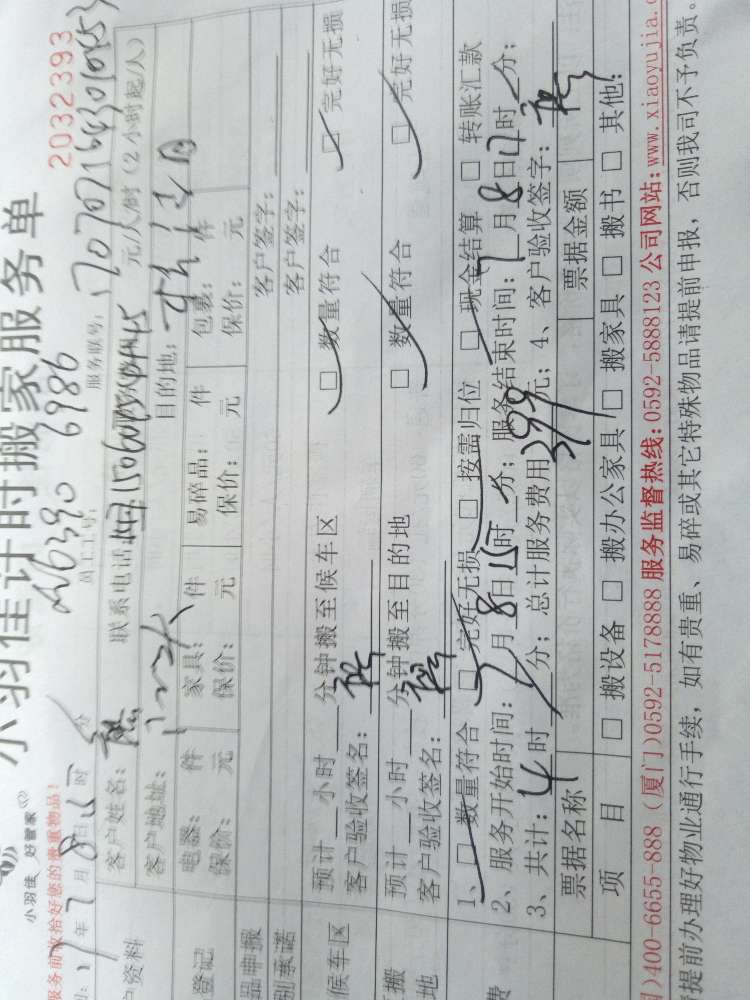 小羽佳 好管家
小羽佳计时搬家服务单
2032393
服务前收拾好您的贵重物品!
46390 6986
员工工号:
服务联号: 170707164301
17年7月8日15时 分
客户姓名: 熊 联系电话: 元/人/时(2小时起/人)
客户地址: 目的地:
户资料
电器: 件 家具: 件 易碎品: 件 包裹: 件
保价: 元 保价: 元 保价: 元 保价: 元
登记
品申报 客户签字:
别承诺 客户签字:
候车区
预计 小时 分钟搬至候车区 □数量符合 □完好无损
客户验收签名: 熊
搬 地
预计 小时 分钟搬至目的地 □数量符合 □完好无损
客户验收签名: 熊
费
1、□数量符合 □完好无损 □按需归位 □现金结算 □转账汇款
2、服务开始时间: 7月8日15时 分; 服务结束时间: 7月8日17时 分;
3、共计: 4时 分; 总计服务费用399元; 4、客户验收签字: 熊
票据名称 票据金额
项 目 □搬设备 □搬办公家具 □搬家具 □搬书 □其他:
)400-6655-888 (厦门)0592-5178888 服务监督热线:0592-5888123 公司网站:www.xiaoyujia.c
提前办理好物业通行手续, 如有贵重、易碎或其它特殊物品请提前申报, 否则我司不予负责。